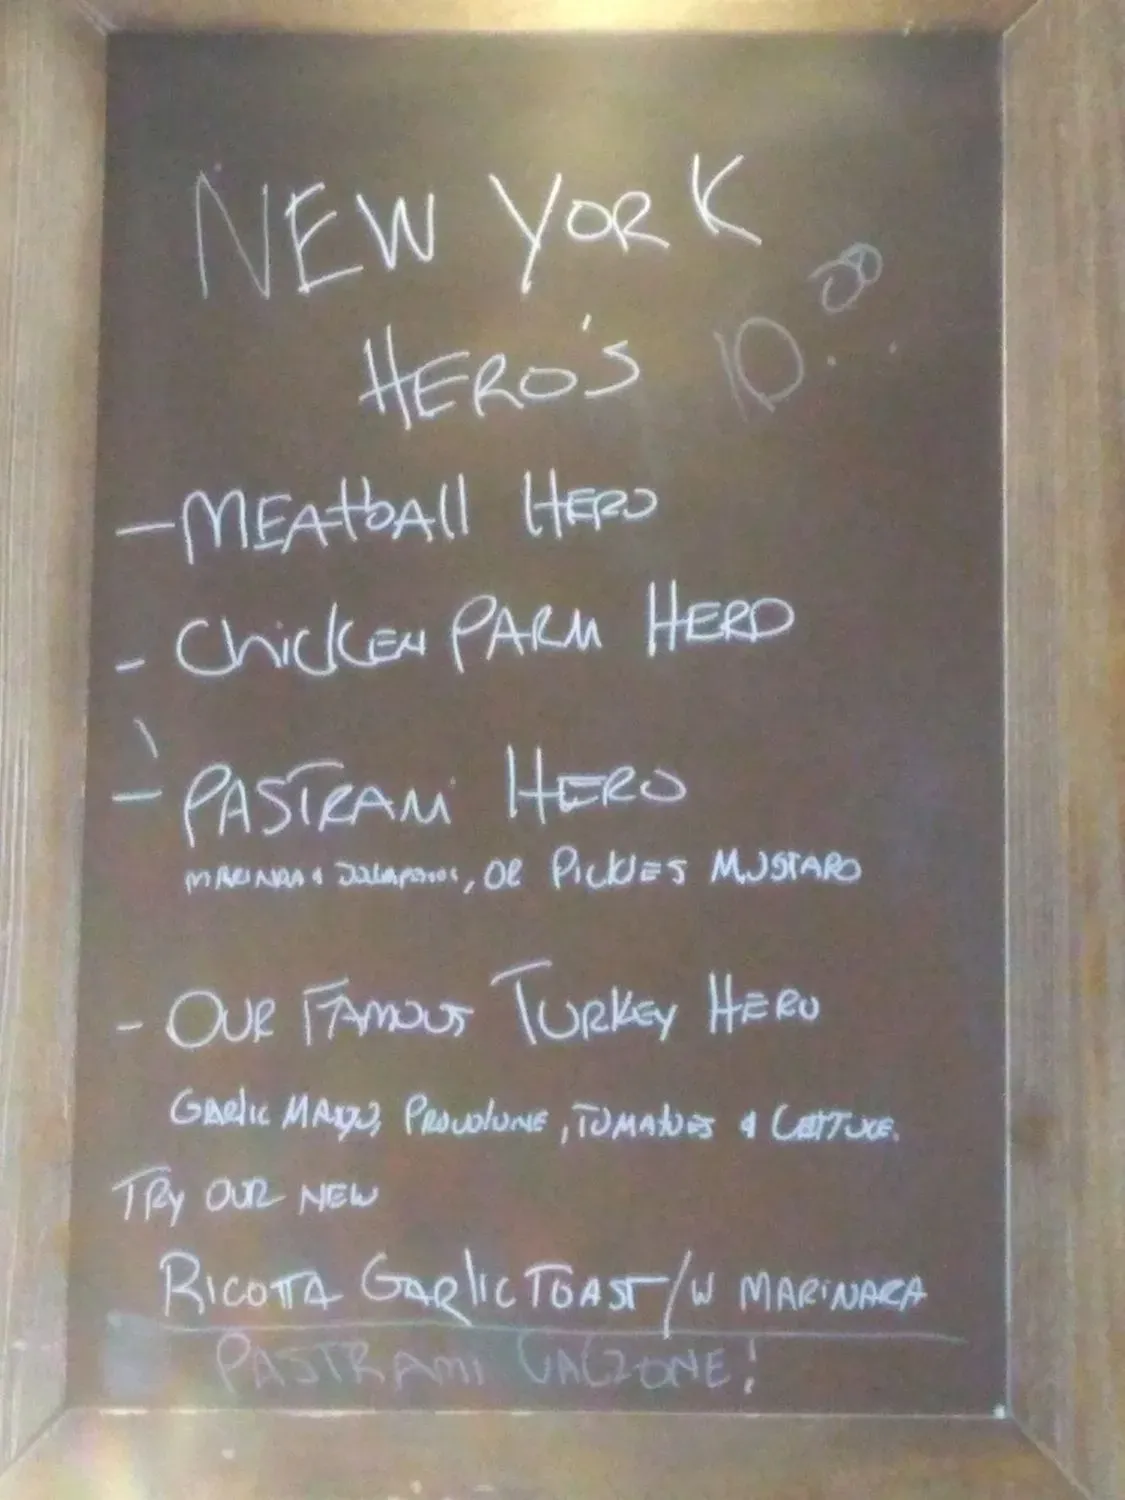 NEW YORK
HERO'S 10.00
- MEATbAll HERO
- ChicKEN PARM HERO
- PASTRAMi HERO
MARINARA & JALAPENOS, OR PICKLES MUSTARD
- OUR FAMOUS TURKEY HERO
GARlic MAYO, PROVOLONE, TOMATOES & LETTUCE.
TRY OUR NEW
RICOTTA GARlIC TOAST /W MARINARA
PASTRAMI CALZONE!